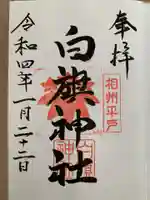 奉拝
相州平戸
白旗神社
令和四年一月二十二日